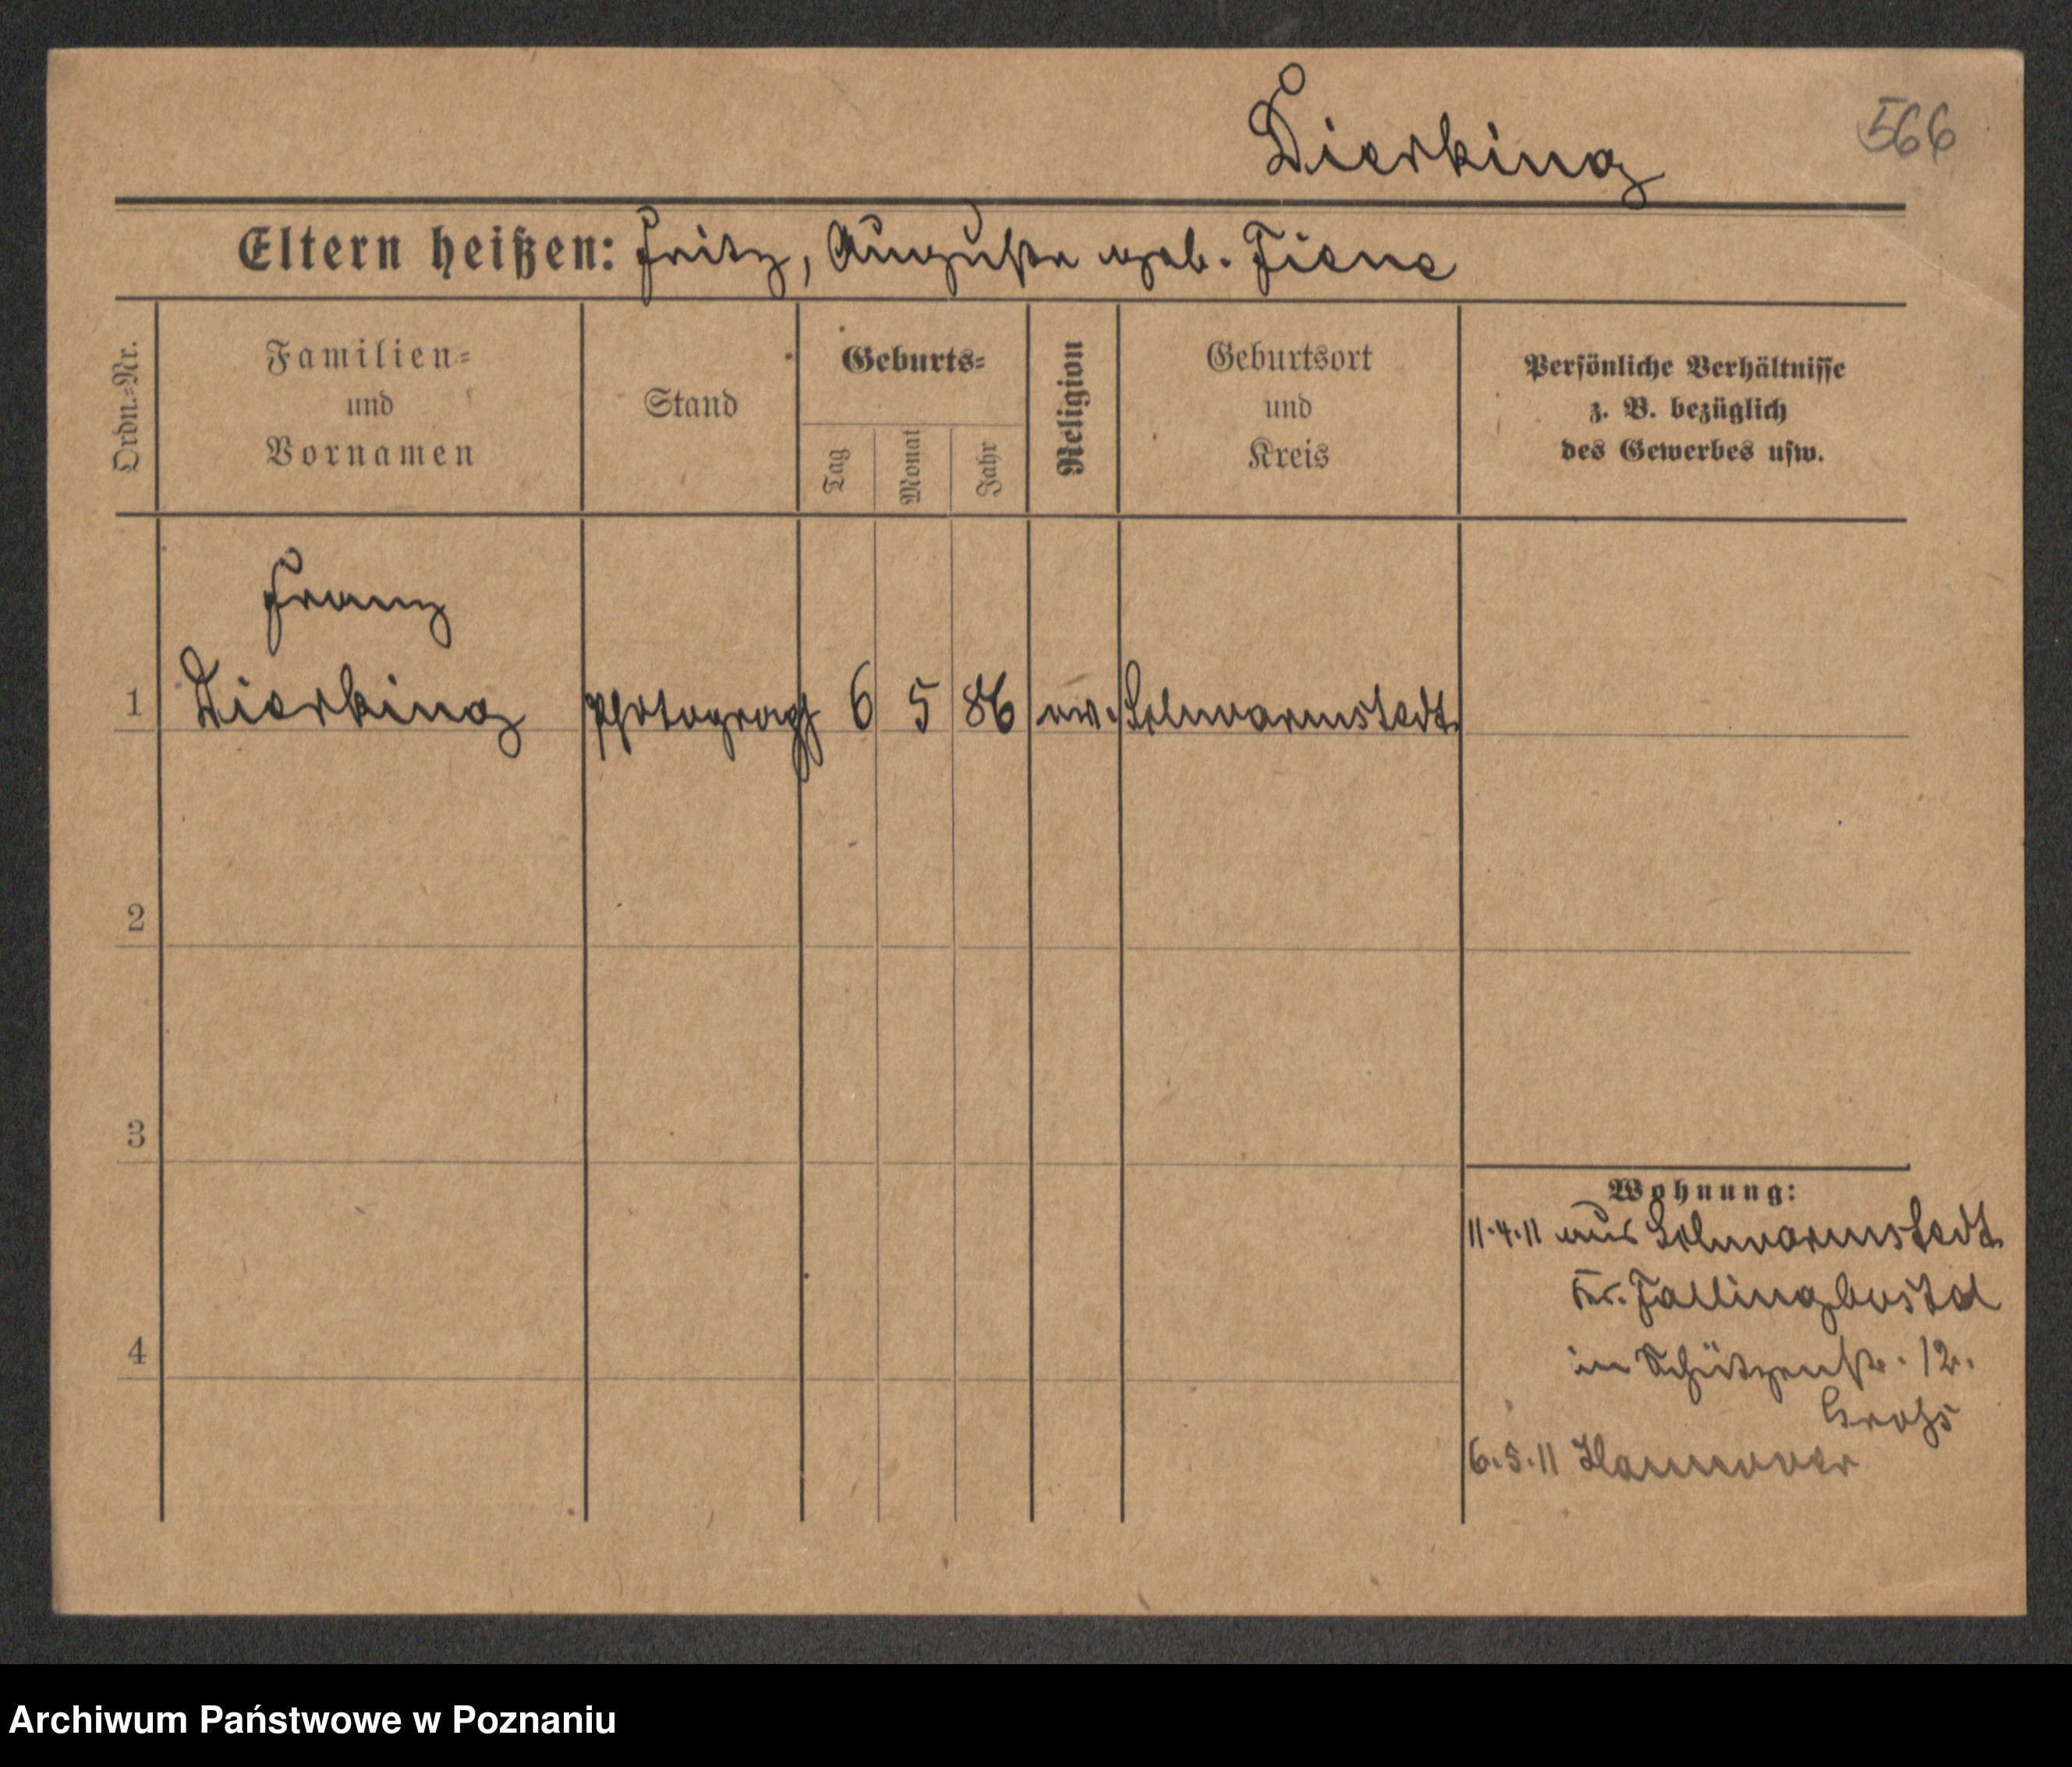 Dierking
566
Eltern heißen: Fritz, Auguste geb. Fiene
Ordn.=Nr.
Familien=
und
Vornamen
Stand
Geburts=
Tag
Monat
Jahr
Religion
Geburtsort
und
Kreis
Persönliche Verhältnisse
z. B. bezüglich
des Gewerbes usw.
Franz
1 Dierking Photograph 6 5 86 ev. Schwarmstedt
2
3
4
Wohnung:
11.4.11 aus Schwarmstedt
Kr. Fallingbostel
in Schützenstr. 12.
Gross
6.5.11 Hannover
Archiwum Państwowe w Poznaniu